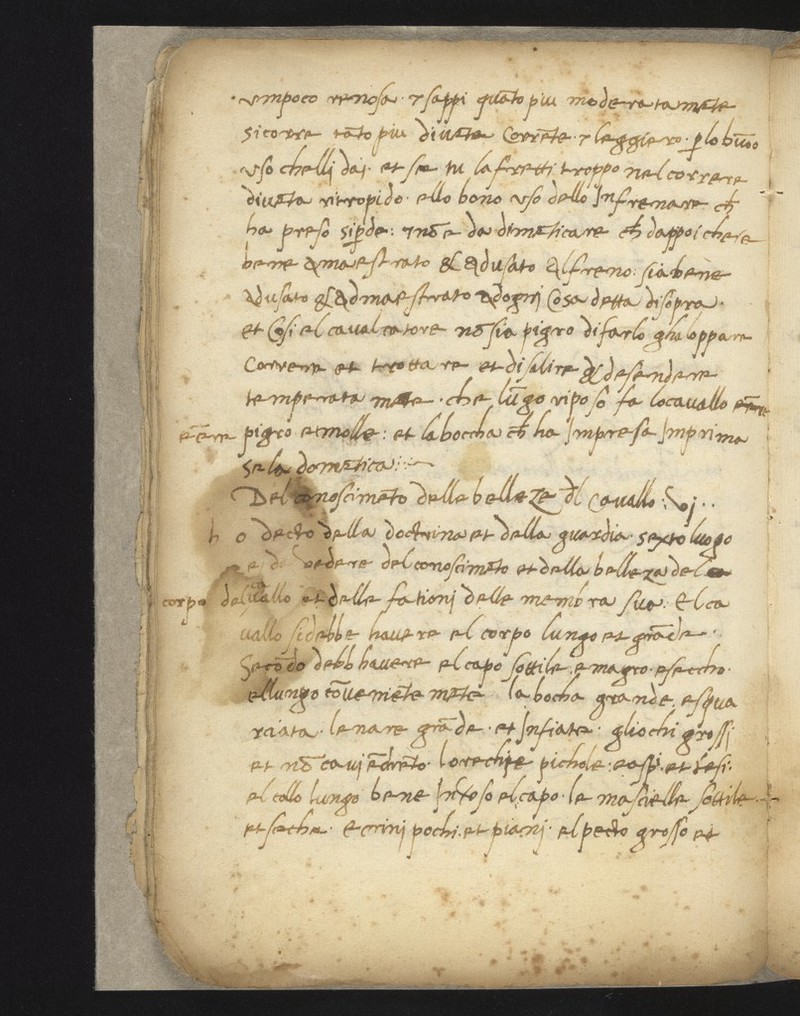 umpoco renosa · ⁊ sappi quāto piu moderatamēte
si corre tāto piu diuēta corrēte ⁊ leggiero · p̱ lo buōo
uso chelli dai · et se tu lafretti troppo nel correre
diuēta ritropido · ello bono uso dello Infrenare ch̄
ha preso si p̱de : ⁊ nō e da dimēticare ch̄ dappoi che le
bene amaestrato & adusato alfreno : sia bene
adusato & admaestrato adogni cosa detta disopra ·
et cosi el caualcatore nō sia pigro difarlo ghaloppare
correre et trottare et disalire & desendere
temperata mēte · che lūgo riposo fa locauallo
eēre pigro et molle : et la boccha ch̄ ha Impresa Imprima
se la domētica :~
Del conoscimēto delle belleze dl̄ cauallo : vj ··
h o decto della doctrina et della guardia sexto luogo
e di vedere del conoscimēto et della belleza del
corpo del uallo et delle fationi delle membra sua · El ca
uallo si debbe hauere el corpo lungo et grāde ·
Secōdo debb hauere el capo sottile e magro e seccho ·
ellungo cōueniēte mēte la bocha grande · e squa
rciata · le nare grāde · et Infiate · gliochi grossi
et nō cauj ēdrēto · lorechie pichole · e aspi · et tesi ·
el collo lungo bene Inverso el capo · le mascielle sottile
et seche · E crini pochi · et piani · el pecto grosso et